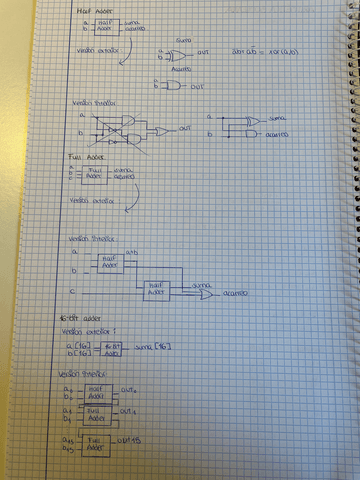 Half Adder
a
b
Half
Adder
suma
acarreo
Versión exterior
suma
a
b
out
āb+ab̄ = xor(a,b)
Acarreo
a
b
out
Versión interior
a
b
out
a
b
suma
acarreo
Full Adder
a
b
c
Full
Adder
suma
acarreo
Versión exterior
Versión interior
a
b
Half
Adder
a+b
c
Half
Adder
suma
acarreo
16-bit adder
Versión exterior:
a [16]
b [16]
16-bit
Adder
suma [16]
Versión interior:
a₀
b₀
Half
Adder
out₀
a₁
b₁
Full
Adder
out₁
a15
b15
Full
Adder
out15